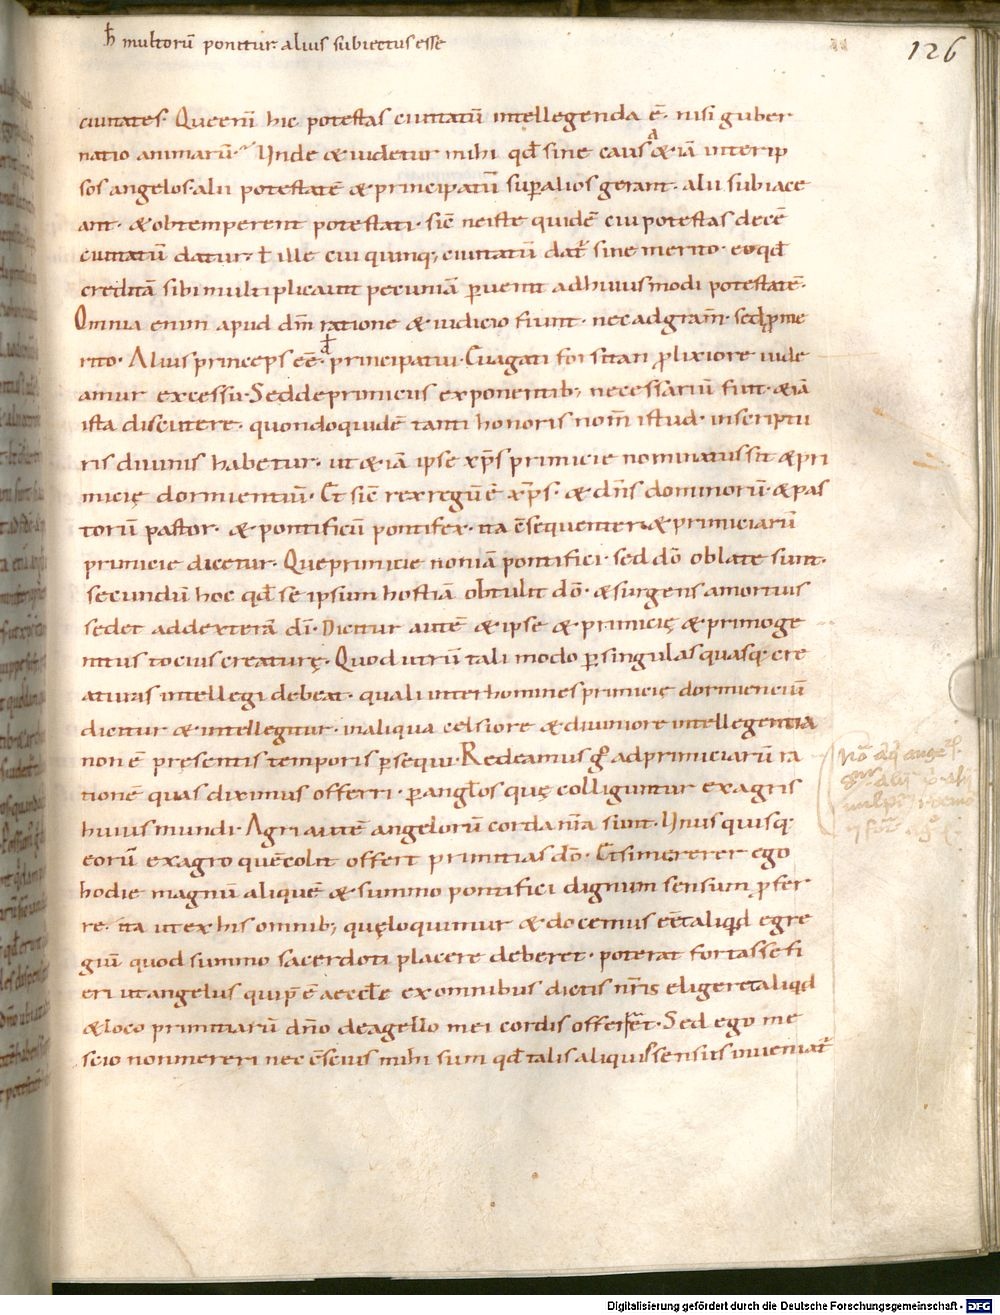 ħ multorū ponitur alius subiectus esse
126
ciuitates. Que enī hic potestas ciuitatū intellegenda ē. nisi guber
natio animarū. Unde & uidetur mihi qđ sine causa & iā inter ip
sos angelos. alii potestatē & principatū sup alios gerant. alii subiace
ant. & obtemperent potestati. sic̄ ne iste quidē cui potestas decē
ciuitatū datur. ł ille cui quinq; ciuitatū dat͛ sine merito. eo qđ
creditā sibi multiplicauit pecuniā puenit ad huiusmodi potestatē.
Omnia enim apud dm̄ ratione & iudicio fiunt. nec ad gram̄. sed p me
rito. Alius princeps ēē. ł d principatui. Euagati forsitan plixiore uide
amur excessu. Sed de primicus exponentib; necessariū fuit. & iā
ista discutere. quondoquidē tanti honoris nom̄ istud. in scriptu
ris diuinis habetur. ut & iā ipse xp̄s primicie nominatus sit & pri
micię dormientiū. Et sic̄ rex regū ē xp̄s. & dn̄s dominorū. & pas
torū pastor. & pontificū pontifex. ita c̄sequenter & primiciarū
primicie dicetur. Que primicie non iā pontifici. sed dō oblate sunt.
secundū hoc qđ se ipsum hostiā obtulit dō. & surgens a mortuis
sedet ad dexterā dī. Dicitur autē & ipse & primicię & primoge
nitus tocius creaturę. Quod utrū tali modo p singulas quasq; cre
aturas intellegi debeat. quali inter homines primicię dormienciū
dicitur & intellegitur. in aliqua celsiore & diuiniore intellegentia
non ē presentis temporis psequi. Redeamus g° ad primiciarū ra
tionē quas diximus offerri. p angłos quę colliguntur ex agris
huius mundi. Agri autē angelorū corda nr̄a sunt. Unus quisq;
eorū ex agro quē colit offert primitias dō. Et si mererer ego
hodie magnū aliquē & summo pontifici dignum sensum pfer
re. ita ut ex his omnib; quę loquimur & docemus ēēt aliqđ egre
giū quod summo sacerdoti placere deberet. poterat fortasse fi
eri ut angelus qui pē aeccłe ex omnibus dictis nr̄is eligeret aliqđ
& loco primitiarū dn̄o de agello mei cordis offerret. Sed ego me
scio non mereri nec c̄scius mihi sum qđ talis aliquis sensus inueniat͛
Digitalisierung gefördert durch die Deutsche Forschungsgemeinschaft - DFG